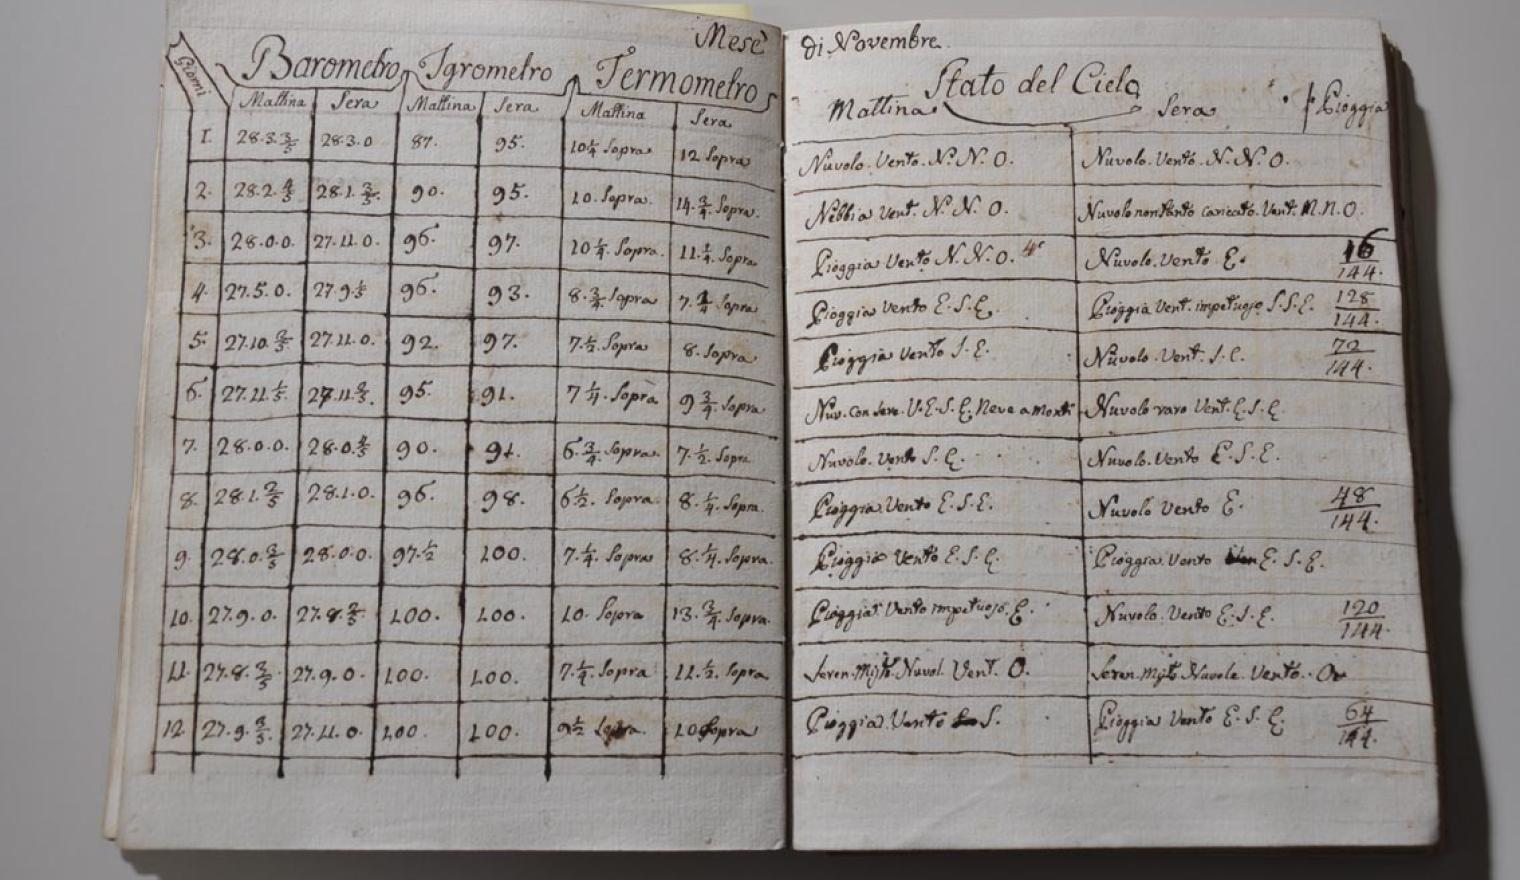 Mese di Novembre
Giorni Barometro Igrometro Termometro Stato del Cielo
Mattina Sera Mattina Sera Mattina Sera Mattina Sera Pioggia
1. 28.3.3/5 28.3.0 87. 95. 10 1/4 Sopra 12 Sopra Nuvolo. Vento. N.N.O. Nuvolo. Vento. N.N.O.
2. 28.2.4/5 28.1.3/5. 90. 95. 10. Sopra. 14.3/4. Sopra. Nebbia Vent. N.N.O. Nuvolo non tanto caricato. Vent. N.N.O.
3. 28.0.0. 27.11.0. 96. 97. 10 1/4. Sopra. 11.1/4. Sopra Pioggia Vento N.N.O. Nuvolo. Vento E. 16/144.
4. 27.5.0. 27.9.1/5 96. 93. 8.3/4. Sopra 7. Sopra Pioggia Vento E.S.E. Pioggia Vent. impetuoso S.S.E. 128/144.
5. 27.10.2/5 27.11.0. 92. 97. 7.1/2. Sopra 8. Sopra Pioggia Vento S.E. Nuvolo. Vent. S.E. 72/144.
6. 27.11.1/5 27.11.2/5. 95. 91. 7 1/4. Sopra 9 3/4. Sopra Nuv. con sere. V.E.S.E. Neve a monti Nuvolo raro Vent. E.S.E.
7. 28.0.0. 28.0. 90. 91. 6.3/4. Sopra. 7.1/2. Sopra Nuvolo. Vento S.E. Nuvolo. Vento E.S.E.
8. 28.1.2/5 28.1.0. 96. 98. 6 1/2. Sopra. 8.1/4. Sopra. Pioggia Vento E.S.E. Nuvolo Vento E. 48/144.
9. 28.0. 28.0.0. 97.1/2 100. 7.1/4. Sopra 8.1/4. Sopra. Pioggia Vento E.S.E. Pioggia Vento E.S.E.
10. 27.9.0. 27.8.2/5 100. 100. 10. Sopra 13.3/4. Sopra. Pioggia Vento impetuoso. E. Nuvolo. Vento E.S.E. 120/144.
11. 27.8.3/5. 27.9.0 100. 100. 7.1/4. Sopra 11.1/2. Sopra Seren. Misto. Nuvol. Vent. O. Seren. Misto Nuvole. Vento. O
12. 27.9. 27.11.0. 100. 100. 9 1/2 Sopra. 10 Sopra Pioggia Vento S. Pioggia Vento E.S.E. 64/144.